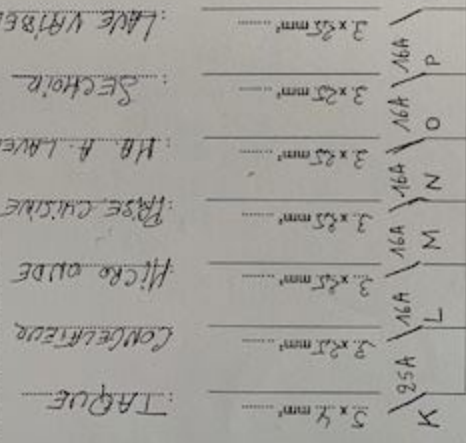 K 25A 5 x 4 mm² TAQUE
L 16A 3 x 2,5 mm² CONGELATEUR
M 16A 3 x 2,5 mm² : MICRO ONDE
N 16A 3 x 2,5 mm² : PRISE CUISINE
O 16A 3 x 2,5 mm² : MA. A LAVE
P 16A 3 x 2,5 mm² : SECHOIR
3 x 2,5 mm² : LAVE VAISSE